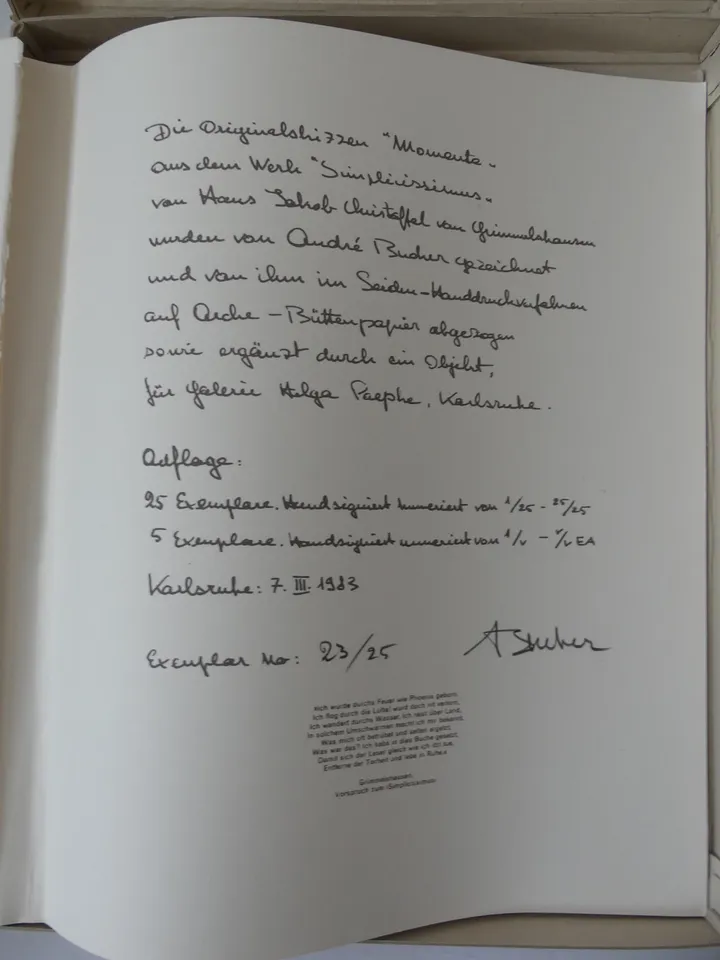 Die Originalskizzen "Momente"
aus dem Werk "Simplicissimus"
von Hans Jakob Christoffel von Grimmelshausen
wurden von André Bucher gezeichnet
und von ihm im Seiden-Handdruckverfahren
auf Arche - Büttenpapier abgezogen
sowie ergänzt durch ein Objekt,
für Galerie Helga Paepke, Karlsruhe.
Auflage:
25 Exemplare. Handsigniert numeriert von 1/25 - 25/25
5 Exemplare. Handsigniert numeriert von I/V - V/V EA
Karlsruhe: 7. III. 1983
Exemplar No: 23/25
A Bucher
»Ich wurde durchs Feuer wie Phoenix geborn.
Ich flog durch die Lüfte! wurd doch nit verlorn.
Ich wandert durchs Wasser. Ich reist über Land,
In solchem Umschwärmen macht ich mir bekannt,
Was mich oft betrübet und selten ergetzt.
Was war das? Ich habs in dies Buche gesetzt,
Damit sich der Leser gleich wie ich itzt tue,
Entferne der Torheit und lebe in Ruhe.«
Grimmelshausen:
Vorspruch zum »Simplicissimus«